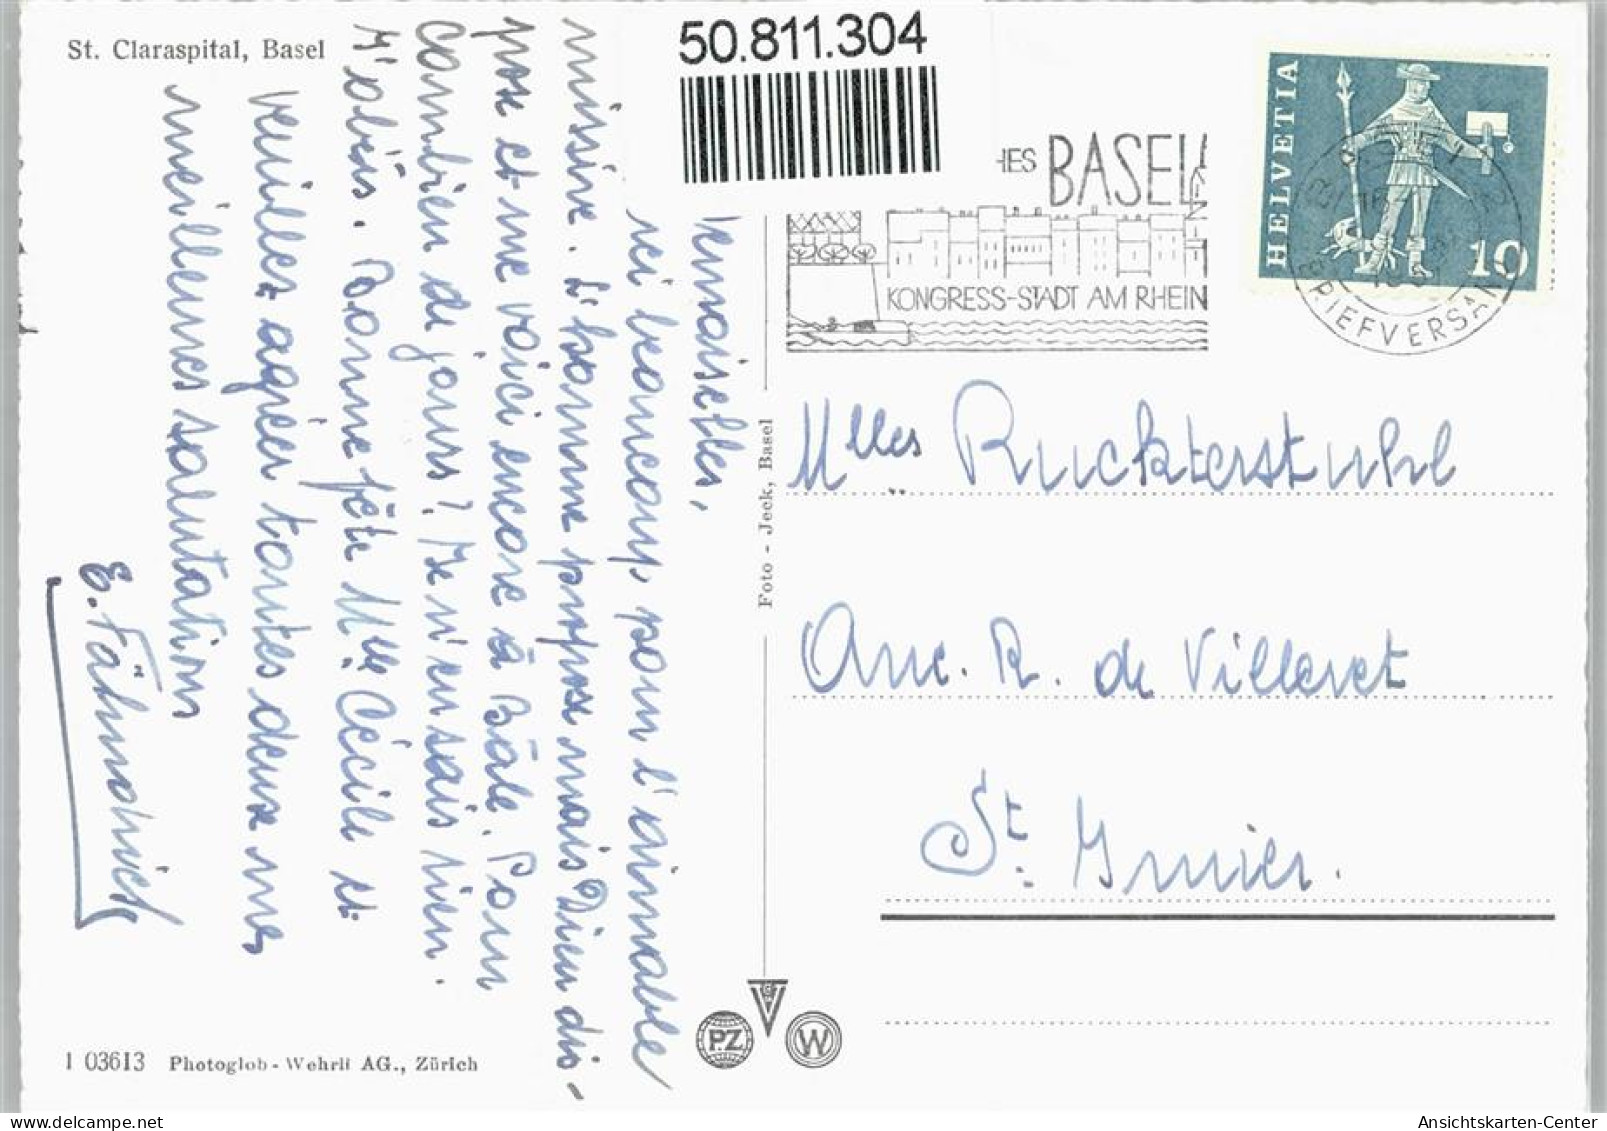 St. Claraspital, Basel
50.811.304
HES BASEL
KONGRESS-STADT AM RHEIN
HELVETIA
10
BRIEFVERSAND
emoiselles,
rci beaucoup, pour l'aimable
missive. L'homme propose mais Dieu dis-
pose et me voici encore à Bâle. Pour
combien de jours? Je n'en sais rien.
J'obéis. Bonne fête Mlle Cécile et
veuillez agréer toutes deux mes
meilleures salutations
E. Fähndrich
Mlles Ruckterstuhl
Anc. R. de Villeret
St. Imier.
Foto - Jeck, Basel
PZ
V
W
1 03613 Photoglob-Wehrli AG., Zürich
Ansichtskarten-Center